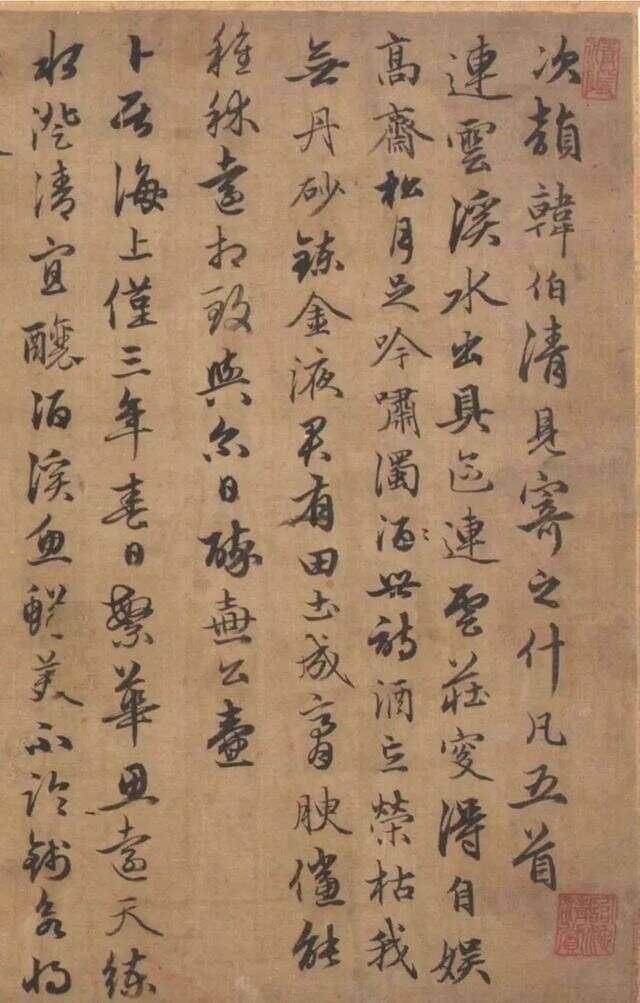 次韻韓伯清見寄之什凡五首
連雲溪水出具區連雲莊叟得自娛
高齋松月足吟嘯濁酒世詩酒忘榮枯我
無丹砂鍊金液君有田土成膏腴儻能
種秫遠相致與尔日醉壺公壺
卜居海上僅三年春日繁華思遠天練
水澄清宜釀酒溪魚鮮美不論錢客將